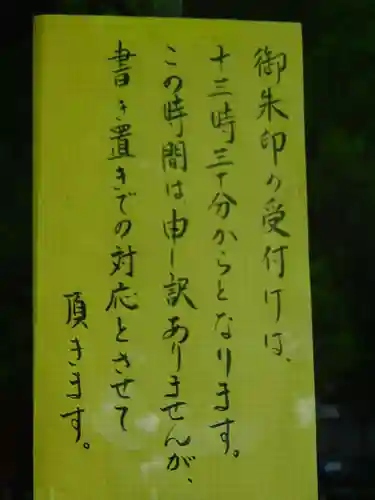 御朱印の受付けは、
十三時三十分からとなります。
この時間は申し訳ありませんが、
書き置きでの対応とさせて
頂きます。